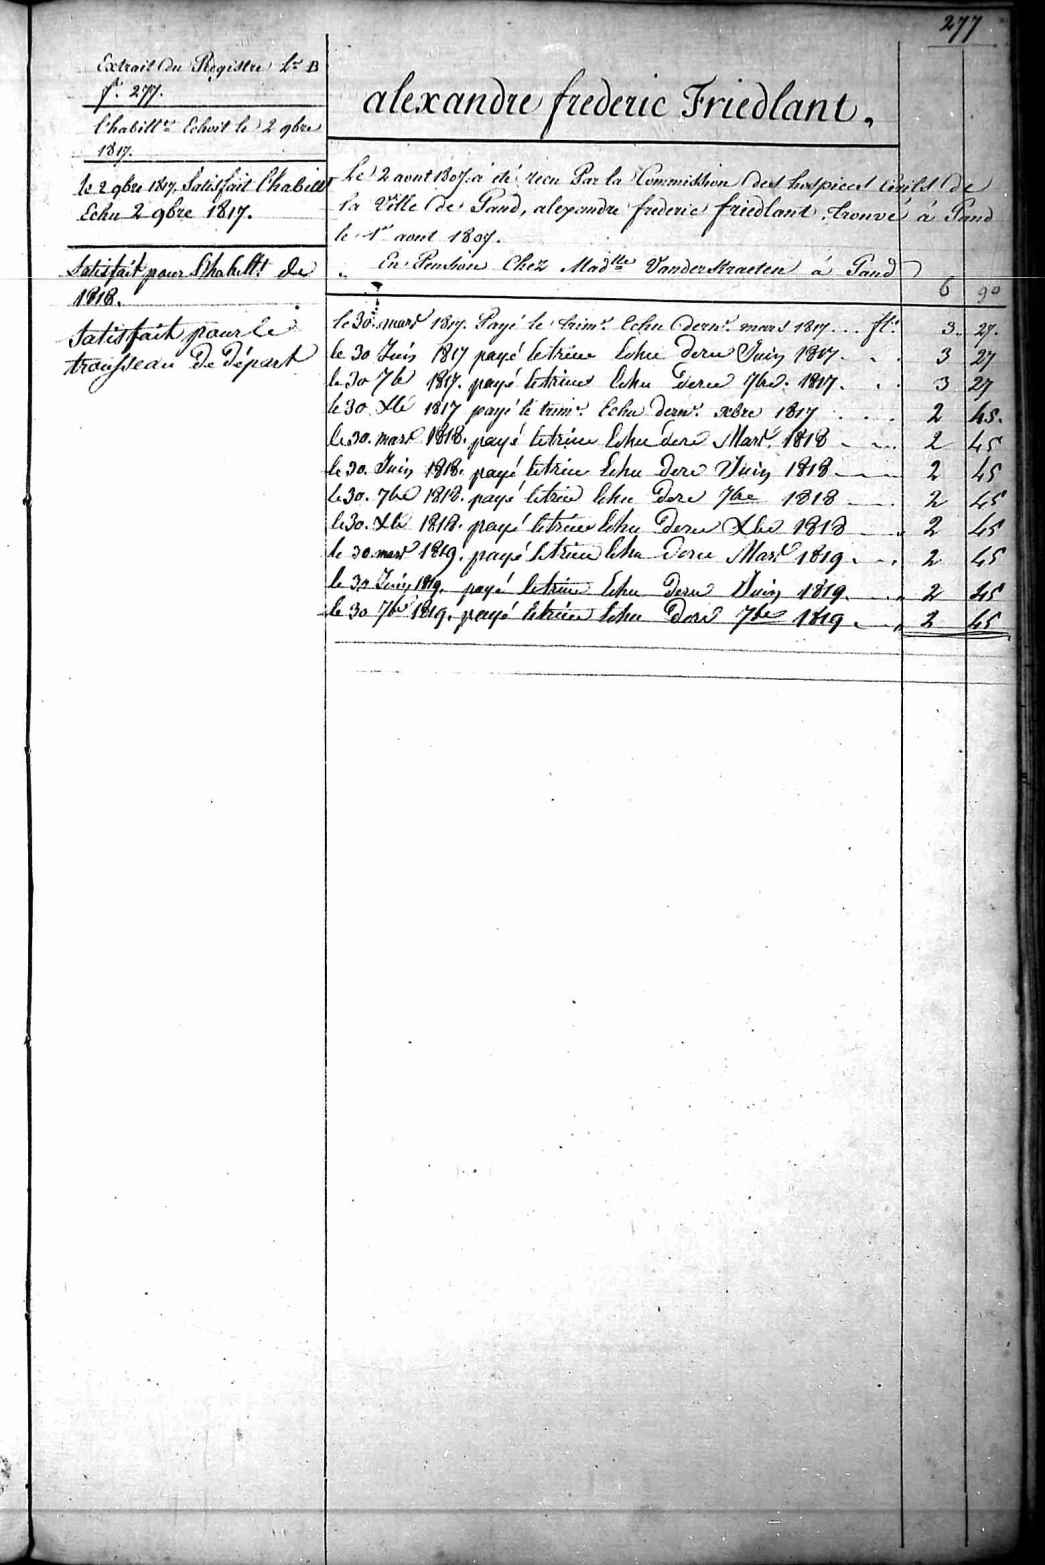 277
Extrait du Registre Lre B
f° 277.
l'habillt Echoit le 2 9bre
1817.
le 2 9bre 1817. Satisfait l'habillt
Echu 2 9bre 1817.
Satisfait pour l'habillt de
1818.
Satisfait pour le
trousseau De Départ
alexandre frederic Friedlant.
Le 2 aout 1807. a été recu Par la Commission des hospices Civils de
la Ville de Gand, alexandre frederic friedlant, trouvé à Gand
le 1er aout 1807.
" En Pension Chez Madlle Vanderstraeten à Gand 6 90
le 30. mars 1817. Payé le trimre Echu dernr mars 1817 . . . fl: 3. 27.
le 30 Juin 1817 payé letrim Echu dern Juin 1817. . . 3 27
le 30 7br 1817. payé letrim Echu dern 7bre. 1817. . . 3 27
le 30. Xbr 1817 payé le trimre Echu dernr xbre 1817 . . . . 2 45.
le 30. mars 1818. payé letrim Echu dern Mars 1818 . . . 2 45
le 30. Juin 1818. payé letrim Echu dern Juin 1818 2 45
le 30. 7br 1818. payé letrim Echu Dern 7bre 1818 2 45
le 30. Xbr 1818. payé letrim Echu Dern Xbre 1818 2 45
le 30 mars 1819. payé letrim Echu dern Mars 1819 . . . 2 45
le 30 Juin 1819. payé letrim Echu dern Juin 1819. 2 45
le 30 7br 1819. payé letrim Echu Dern 7bre 1819 . 2 45